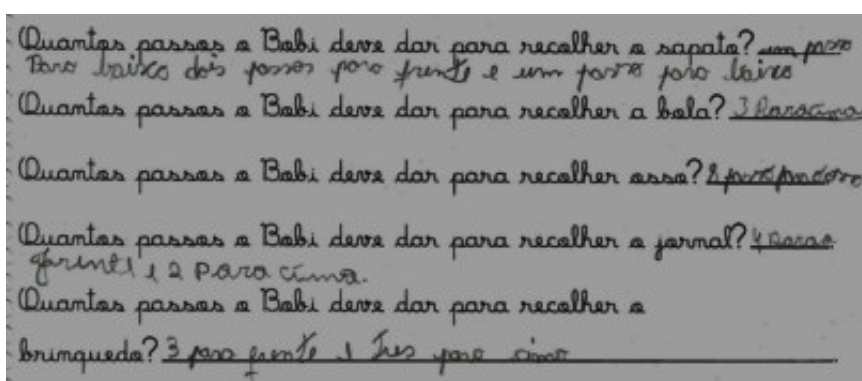 Quantos passos o Bobi deve dar para recolher o sapato? um passo
Para baixo dois passos para frente e um passo para baixo
Quantos passos o Bobi deve dar para recolher a bola? 3 Para cima
Quantos passos o Bobi deve dar para recolher osso?
Quantos passos o Bobi deve dar para recolher o jornal? 4 para
frente e 2 para cima.
Quantos passos o Bobi deve dar para recolher o
brinquedo? 3 para frente e Tres para cima